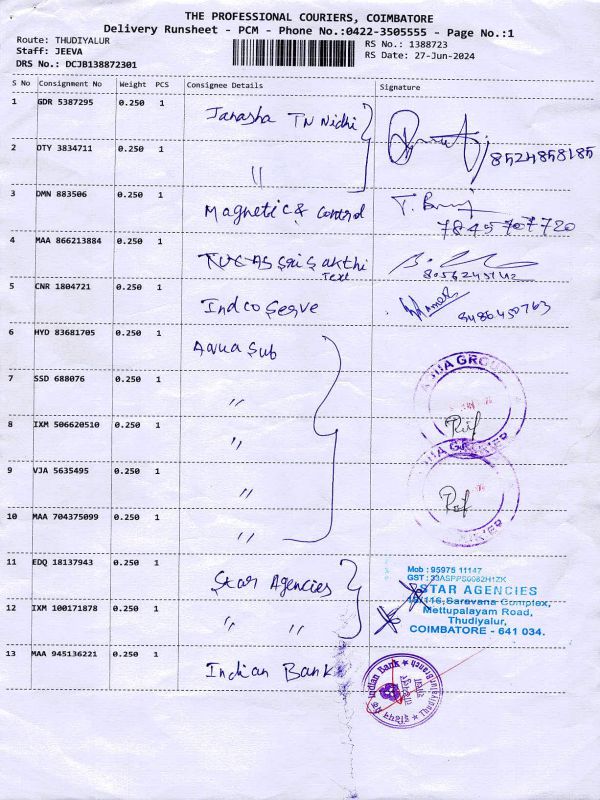 THE PROFESSIONAL COURIERS, COIMBATORE
Delivery Runsheet - PCM - Phone No.:0422-3505555 - Page No.:1
Route: THUDIYALUR
Staff: JEEVA
DRS No.: DCJB138872301
RS No.: 1388723
RS Date: 27-Jun-2024
S No Consignment No Weight PCS Consignee Details Signature
1 GDR 5387295 0.250 1 Janasha TN Nidhi
2 DTY 3834711 0.250 1 "
8524858185
3 DMN 883506 0.250 1 Magnetic & Control
7845707720
4 MAA 866213884 0.250 1 Sri Sakthi
Text
5 CNR 1804721 0.250 1 Indco Serve
9486450763
6 HYD 83681705 0.250 1 Aqua Sub
7 SSD 688076 0.250 1 "
AQUA GROUP
8 IXM 506620510 0.250 1 "
AQUA GROUP
9 VJA 5635495 0.250 1 "
10 MAA 704375099 0.250 1 "
11 EDQ 18137943 0.250 1 Star Agencies
Mob : 95975 11147
GST : 33ASPPS0082H1ZK
STAR AGENCIES
18/116, Saravana Complex,
Mettupalayam Road,
Thudiyalur,
COIMBATORE - 641 034.
12 IXM 100171878 0.250 1 " "
13 MAA 945136221 0.250 1 Indian Bank
Indian Bank